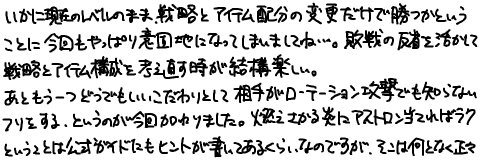 いかに現在のレベルのまま、戦略とアイテム配分の変更だけで勝つかという
ことに今回もやっぱり意固地になってしまいましてね…。敗戦の反省を活かして
戦略とアイテム構成を考え直す時が結構楽しい。
あともう一つどうでもいいこだわりとして相手がローテーション攻撃でも知らない
フリをする、というのが今回加わりました。燃えさかる炎にアストロン当てればラク
ということは公式ガイドにもヒントが書いてあるくらいなのですが、そこは何となく正々